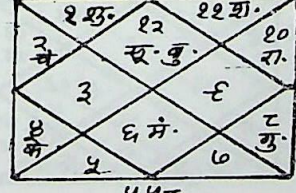 १ शु. १२ ११ श.
२ चं सू. बु. १० रा.
३ ९
४ के. ६ मं. ८ गु.
५ ७